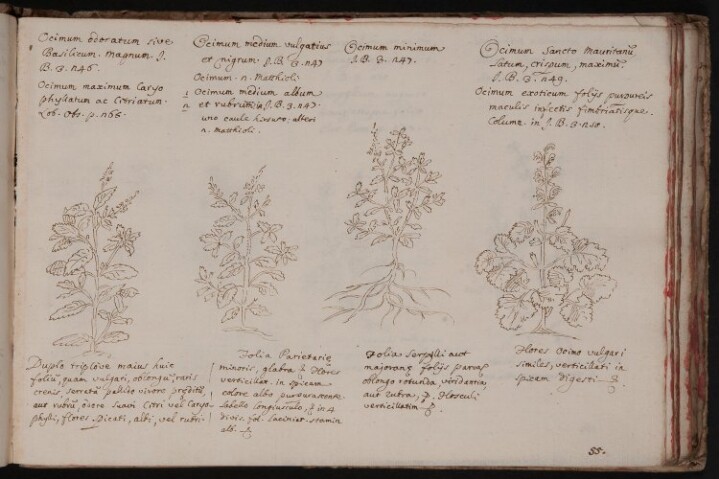 Ocimum odoratum sive
Basilicum magnum J.
B. 3. n46.
Ocimum maximum Caryo
phyllatum ac Citriatum.
Lob. Obs. p. n66.
Ocimum medium vulgatius
et nigrum J.B. 3. n47
Ocimum. n. Matthioli
Ocimum medium album
et rubrum, in J.B. 3. n47.
uno caule
n. Matthioli.
Ocimum minimum
J.B. 3. n47.
Ocimum Sancto Mauritanũ,
latum, crispum, maximũ.
J.B. 3. n49.
Ocimum exoticum folijs purpureis
maculis infectis fimbriatisque.
Column. in J.B. 3. n50.
Duplo triplove maius huic
folia, quam vulgari, oblonga, raris
crenis serrata pallido virore
aut rubro, odore suavi Citri vel Caryo-
phylli, flores spicati, albi, vel rubri.
Folia Parietariæ
minoris, glabra, Flores
verticillat. in spicam
colore albo purpurascente
labello longiusculo, in 4
divis.
alb.
Folia Serpylli aut
majoranæ folijs paria
oblongo rotunda, viridantia,
aut rubra, Flosculi
verticillatim
Flores Ocimo vulgari
similes, verticillati in
spicam digesti.
55.